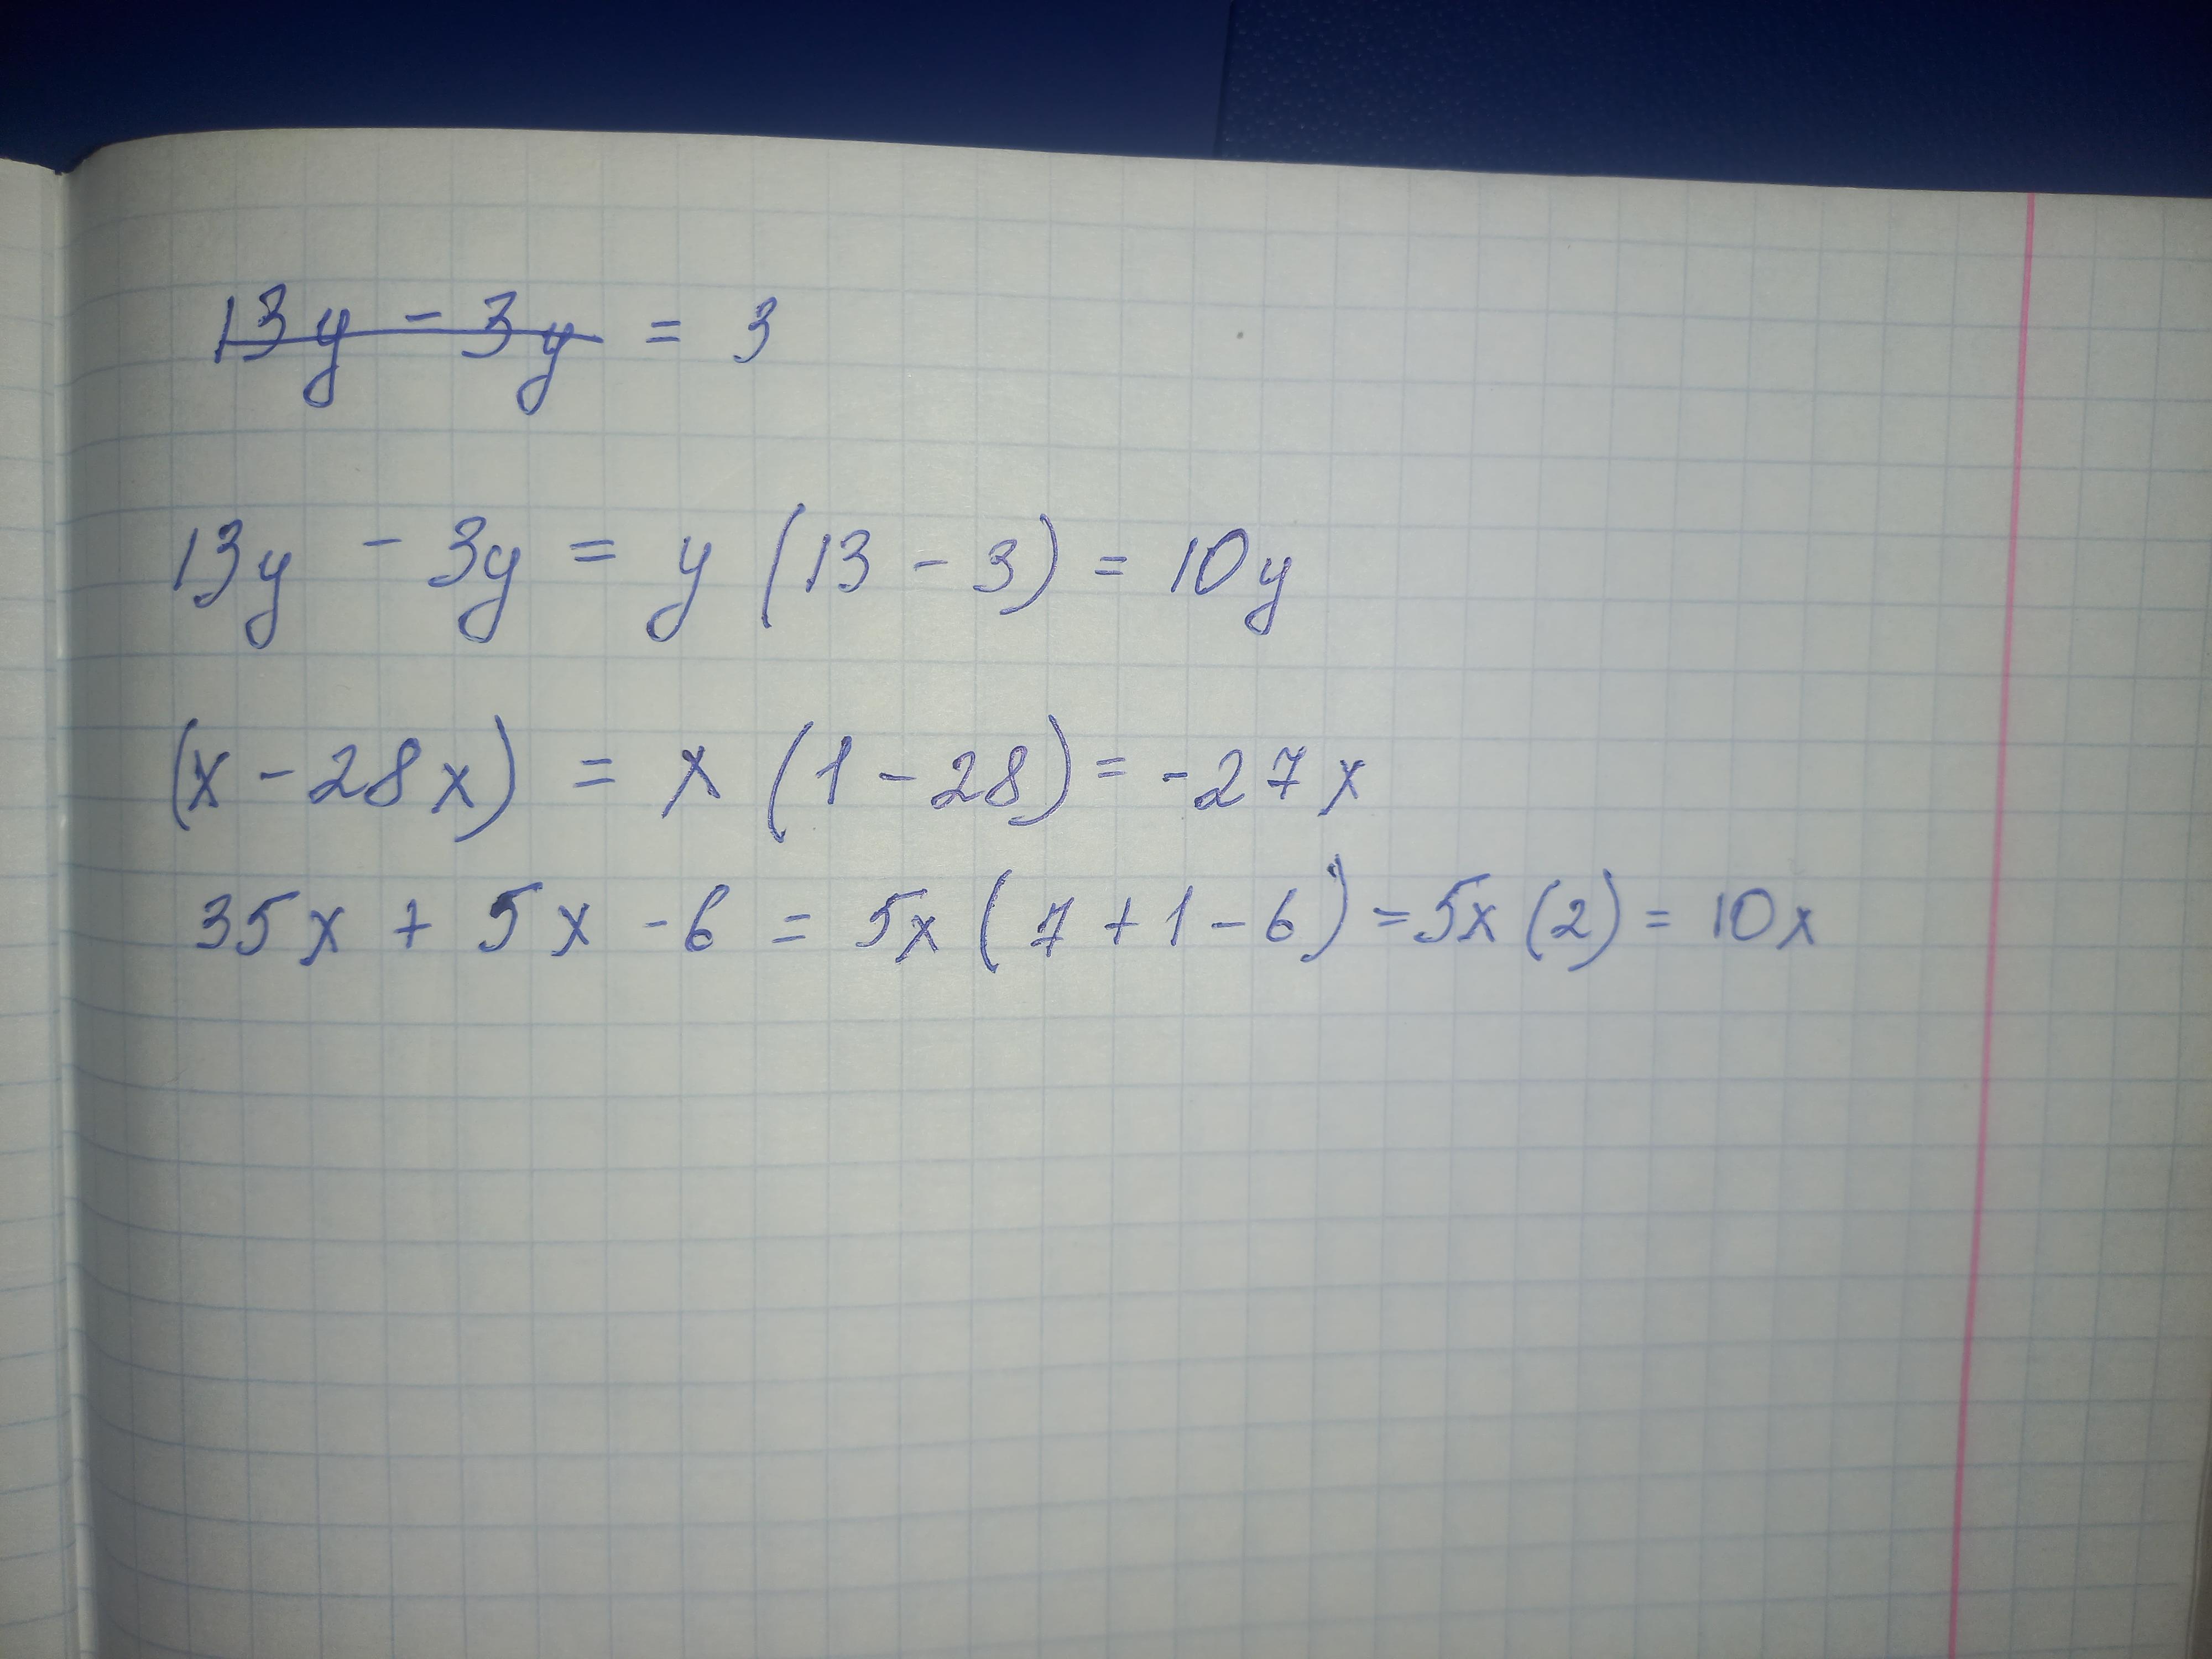 13y - 3y = 3
13y - 3y = y (13 - 3) = 10y
(x - 28x) = x (1 - 28) = -27x
35x + 5x - 6 = 5x (7 + 1 - 6) = 5x (2) = 10x